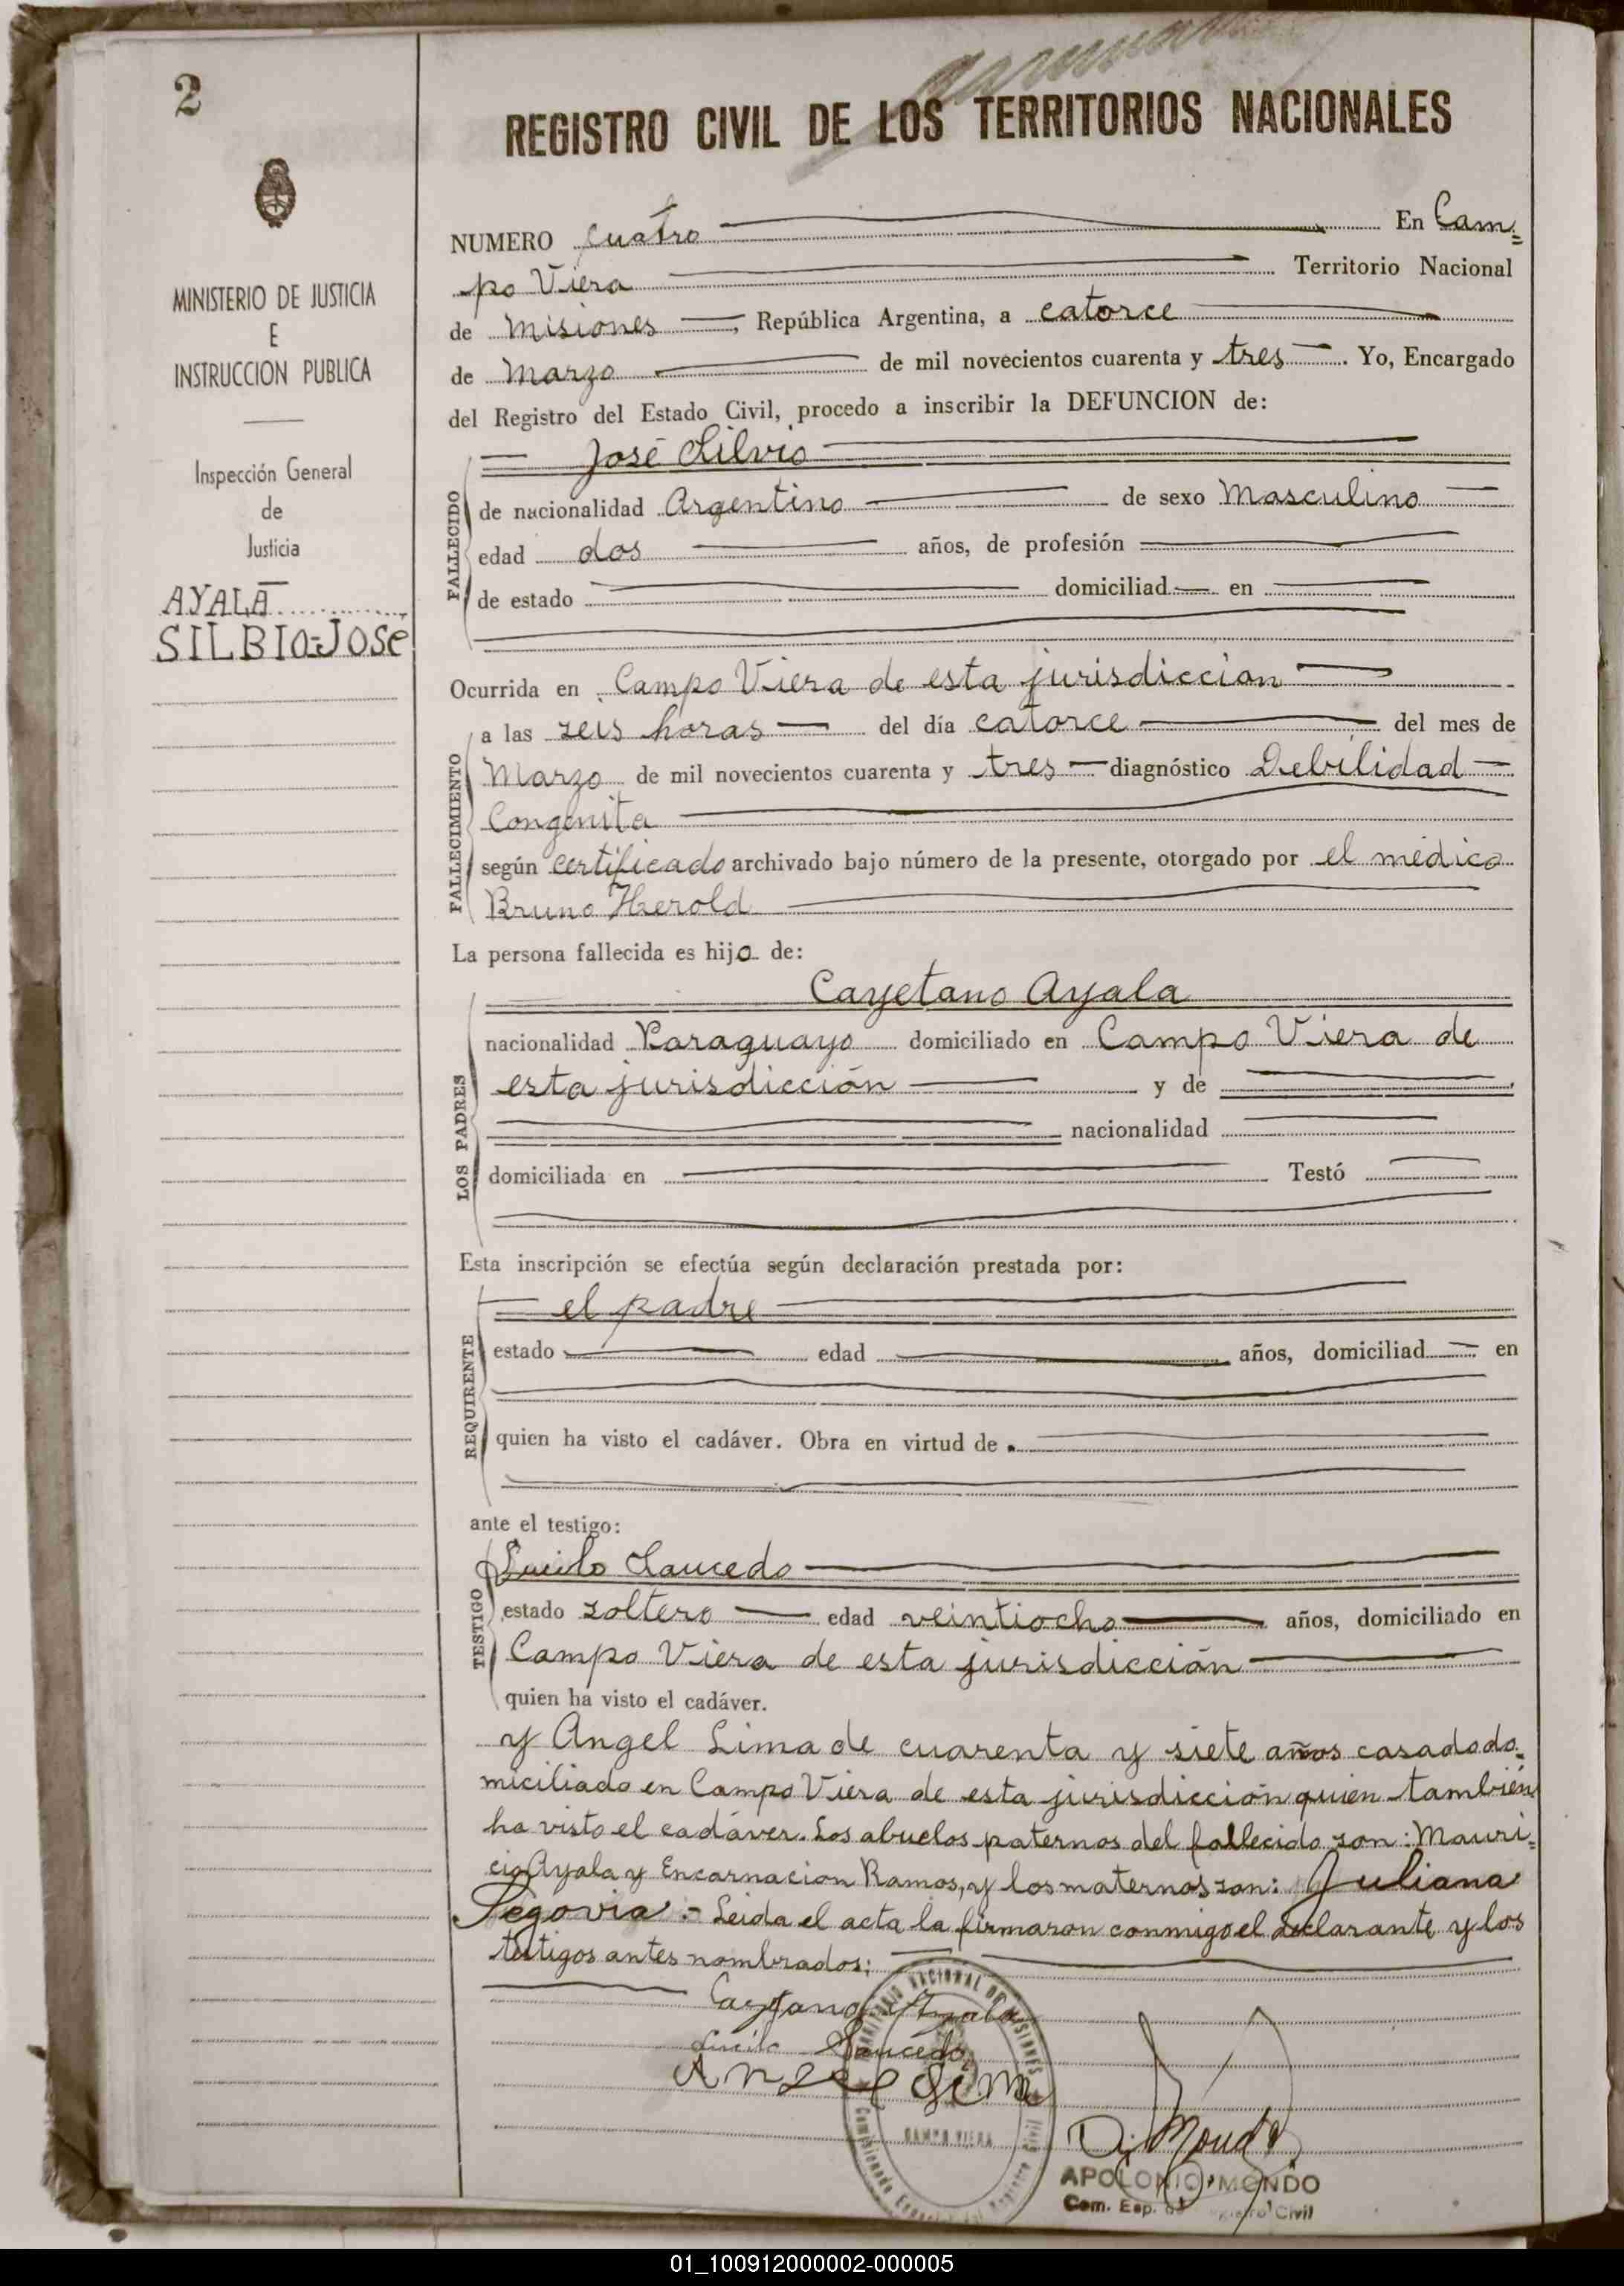 2
REGISTRO CIVIL DE LOS TERRITORIOS NACIONALES
MINISTERIO DE JUSTICIA
E
INSTRUCCION PUBLICA
Inspección General
de
Justicia
AYALA
SILBIO=JOSé
NUMERO cuatro En Cam=
po Viera Territorio Nacional
de Misiones, República Argentina, a catorce
de Marzo de mil novecientos cuarenta y tres. Yo, Encargado
del Registro del Estado Civil, procedo a inscribir la DEFUNCION de:
José Silvio
FALLECIDO
de nacionalidad Argentino de sexo Masculino
edad dos años, de profesión
de estado domiciliad en
Ocurrida en Campo Viera de esta jurisdiccion
FALLECIMIENTO
a las seis horas del día catorce del mes de
Marzo de mil novecientos cuarenta y tres diagnóstico Debilidad
Congenita
según certificado archivado bajo número de la presente, otorgado por el médico
Bruno Herold
La persona fallecida es hijo de:
LOS PADRES
Cayetano Ayala
nacionalidad Paraguayo domiciliado en Campo Viera de
esta jurisdicción y de
nacionalidad
domiciliada en Testó
Esta inscripción se efectúa según declaración prestada por:
REQUIRENTE
el padre
estado edad años, domiciliad en
quien ha visto el cadáver. Obra en virtud de
ante el testigo:
TESTIGO
Lucilo Saucedo
estado soltero edad veintiocho años, domiciliado en
Campo Viera de esta jurisdicción
quien ha visto el cadáver.
y Angel Lima de cuarenta y siete años casado do=
miciliado en Campo Viera de esta jurisdicción quien también
ha visto el cadáver. Los abuelos paternos del fallecido son: Mauri=
cio Ayala y Encarnación Ramos, y los maternos son: Juliana
Segovia.- Leida el acta la firmaron conmigo el declarante y los
testigos antes nombrados:
Cayetano Ayala
Lucilo Saucedo
Angel Lima
CAMPO VIERA
APOLONIO MONDO
Com. Esp. Civil
01_100912000002-000005